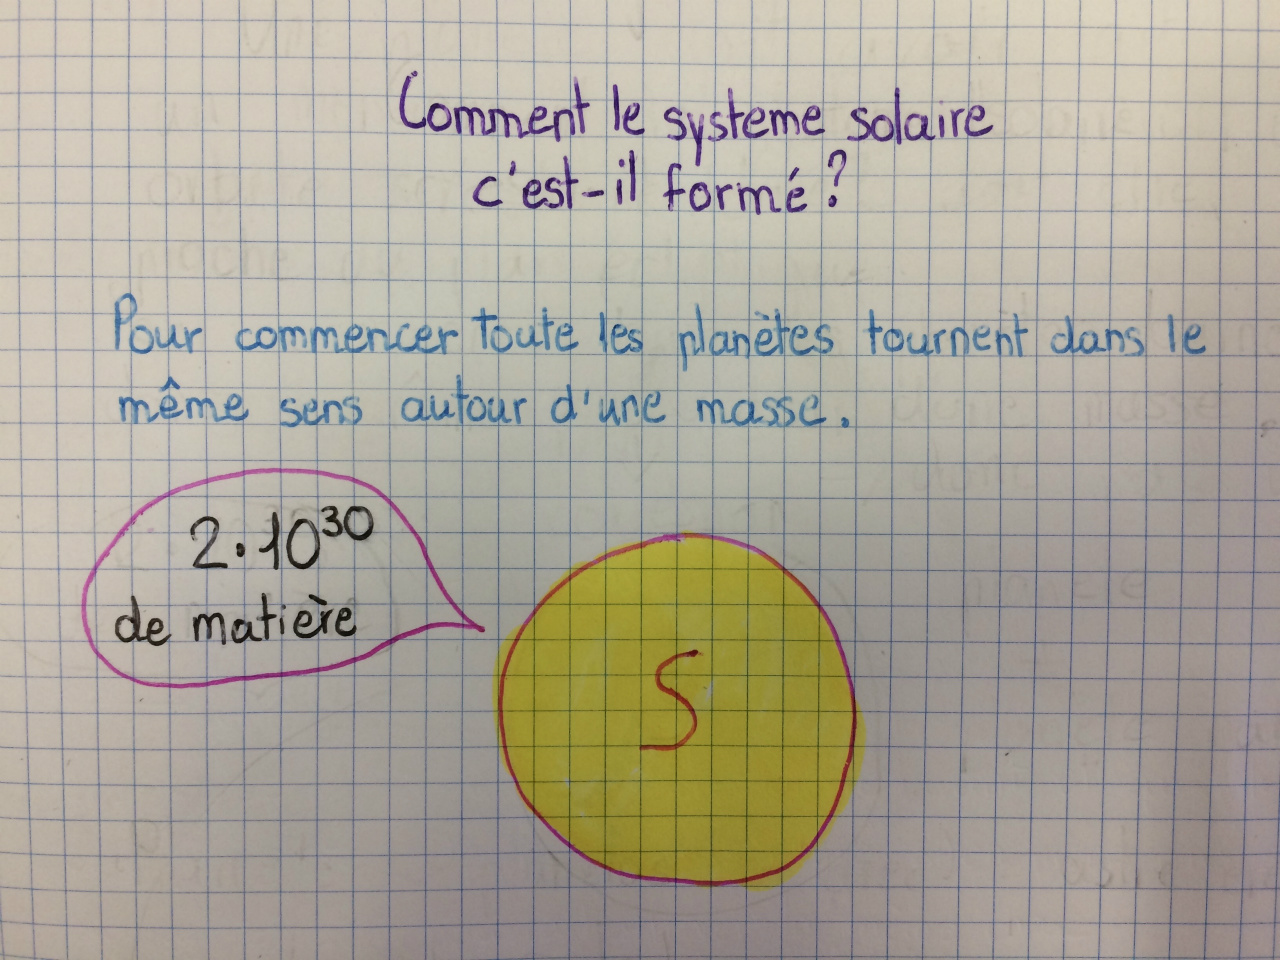 Comment le systeme solaire
c'est-il formé?
Pour commencer toute les planètes tournent dans le
même sens autour d'une masse.
2.10³⁰
de matière
S